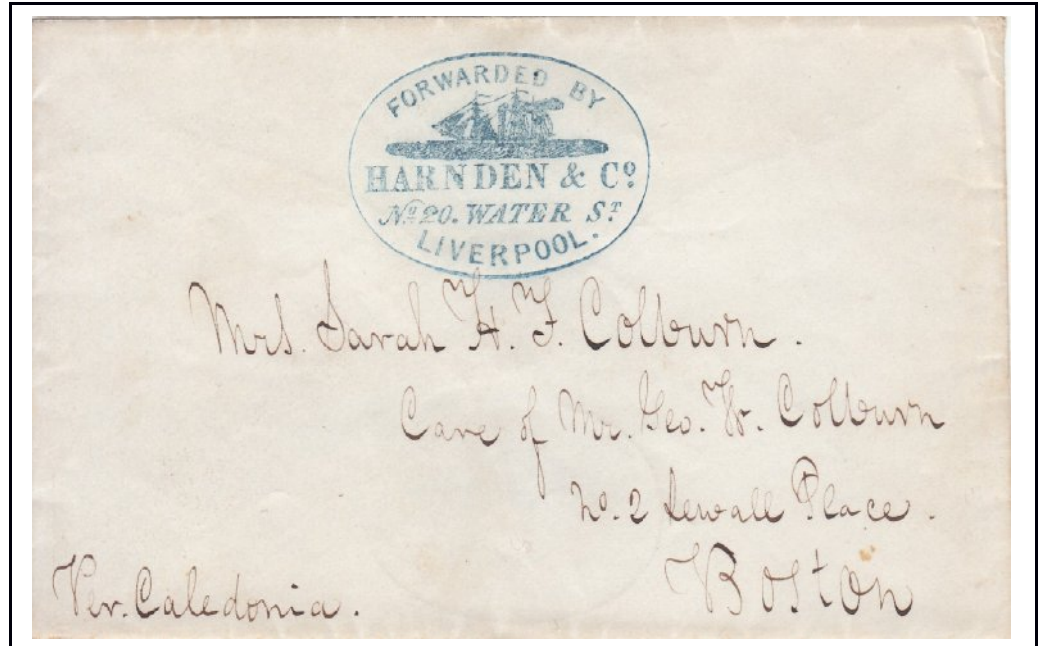 FORWARDED BY
HARNDEN & Cº
Nº 20. WATER ST
LIVERPOOL.
Mrs. Sarah H. F. Colburn.
Care of Mr. Geo. W. Colburn
No. 2 Sewall Place.
Boston
Per. Caledonia.